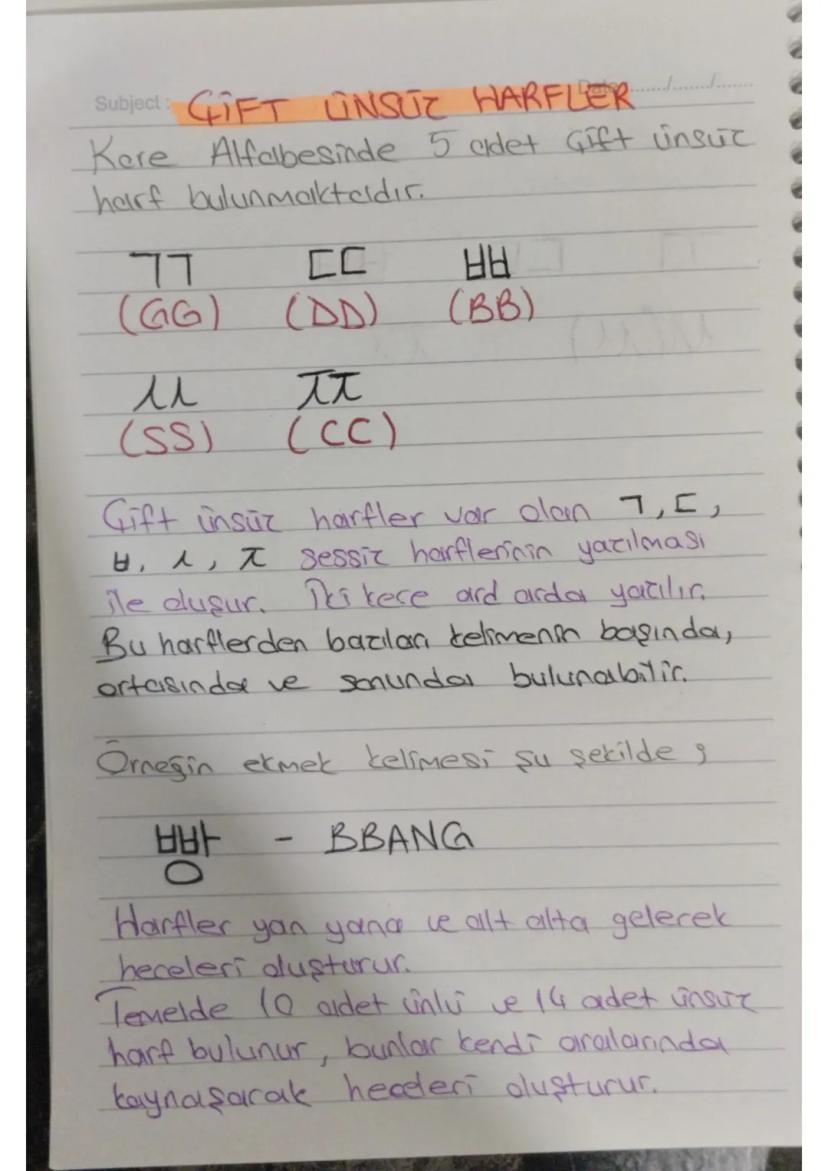 Subject: ÇİFT ÜNSÜZ HARFLER Date:....../....../......
Kore Alfabesinde 5 adet Çift ünsüz
harf bulunmaktadır.
ㄲ ㄸ ㅃ
(GG) (DD) (BB)
ㅆ ㅉ
(SS) (CC)
Çift ünsüz harfler var olan ㄱ, ㄷ,
ㅂ, ㅅ, ㅈ sessiz harflerinin yazılması
ile oluşur. İki kece ard arda yazılır.
Bu harflerden bazıları kelimenin başında,
ortasında ve sonunda bulunabilir.
Örneğin ekmek kelimesi şu şekilde;
빵 - BBANG
Harfler yan yana ve alt alta gelecek
heceleri oluşturur.
Temelde 10 adet ünlü ve 14 adet ünsüz
harf bulunur, bunlar kendi aralarında
kaynaşarak heceleri oluşturur.